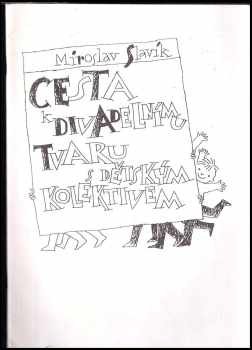 Miroslav Slavík
CESTA
k DIVADELNÍMU
TVARU
S DĚTSKÝM
KOLEKTIVEM